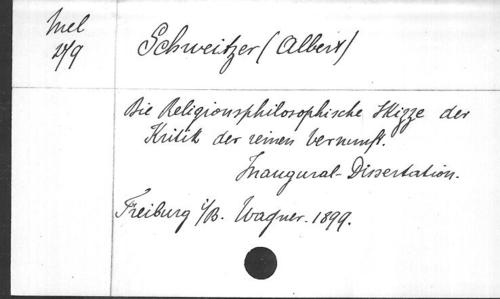 Mel
2/9
Schweitzer (Albert)
Die Religionsphilosophische Skizze der
Kritik der reinen Vernunft.
Inaugural-Dissertation.
Freiburg i/B. Wagner. 1899.